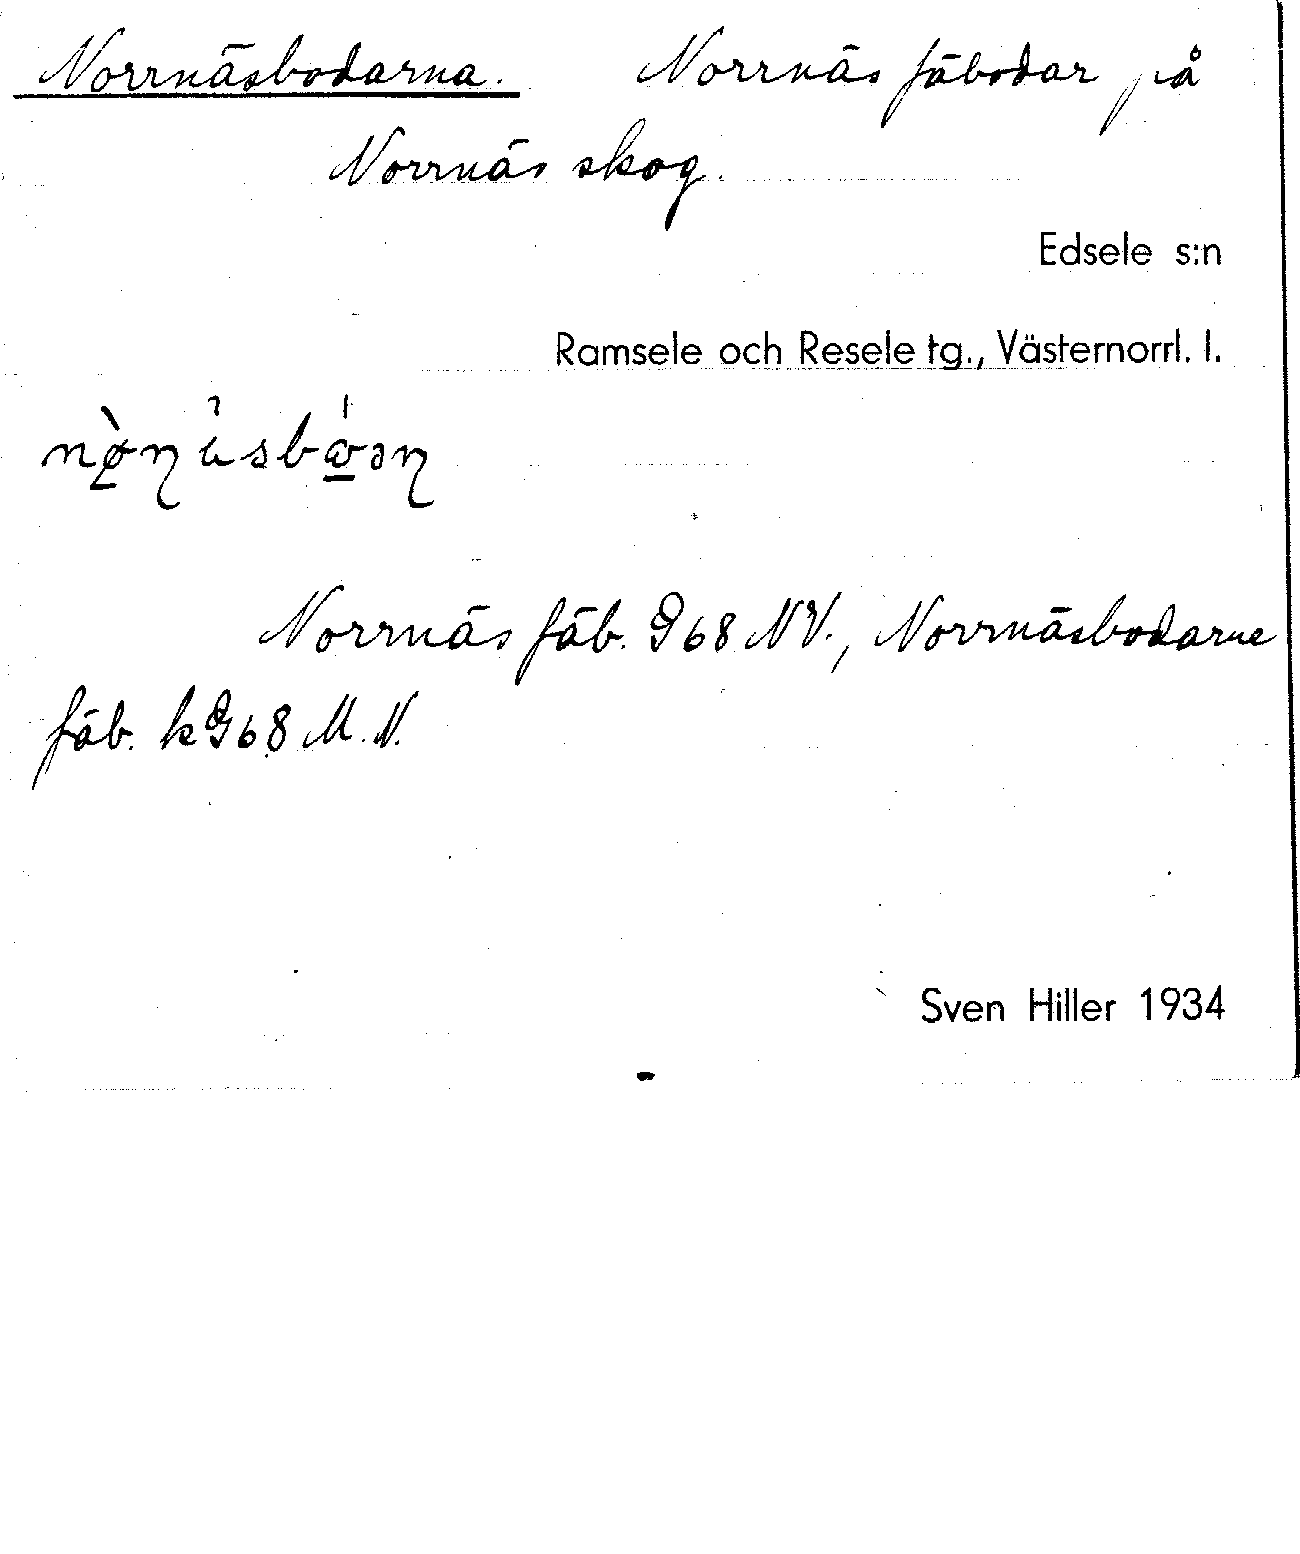 Norrnäsbodarna. Norrnäs fäbodar på
Norrnäs skog.
Edsele s:n
Ramsele och Resele tg., Västernorrl. l.
Norrnäs fäb. G 68 NV., Norrnäsbodarne
fäb. k G 68 M. N.
Sven Hiller 1934